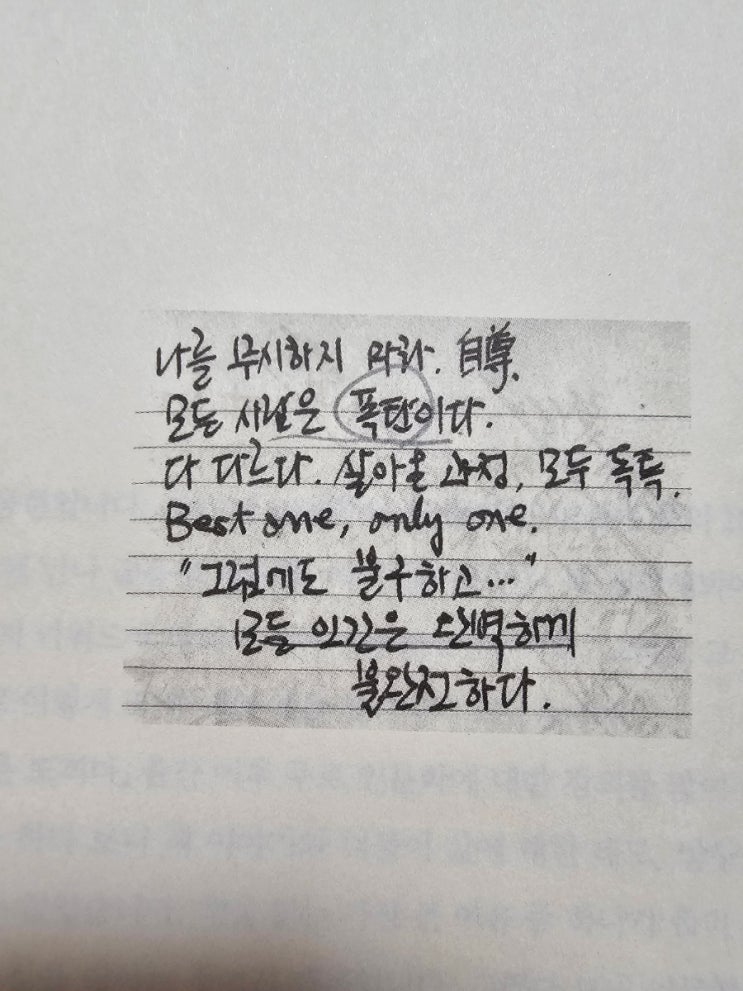 나를 무시하지 마라. 自尊.
모든 사람은 폭탄이다.
다 다르다. 살아온 과정, 모두 독특.
Best one, only one.
"그럼에도 불구하고..."
모든 인간은 완벽하게
불완전하다.